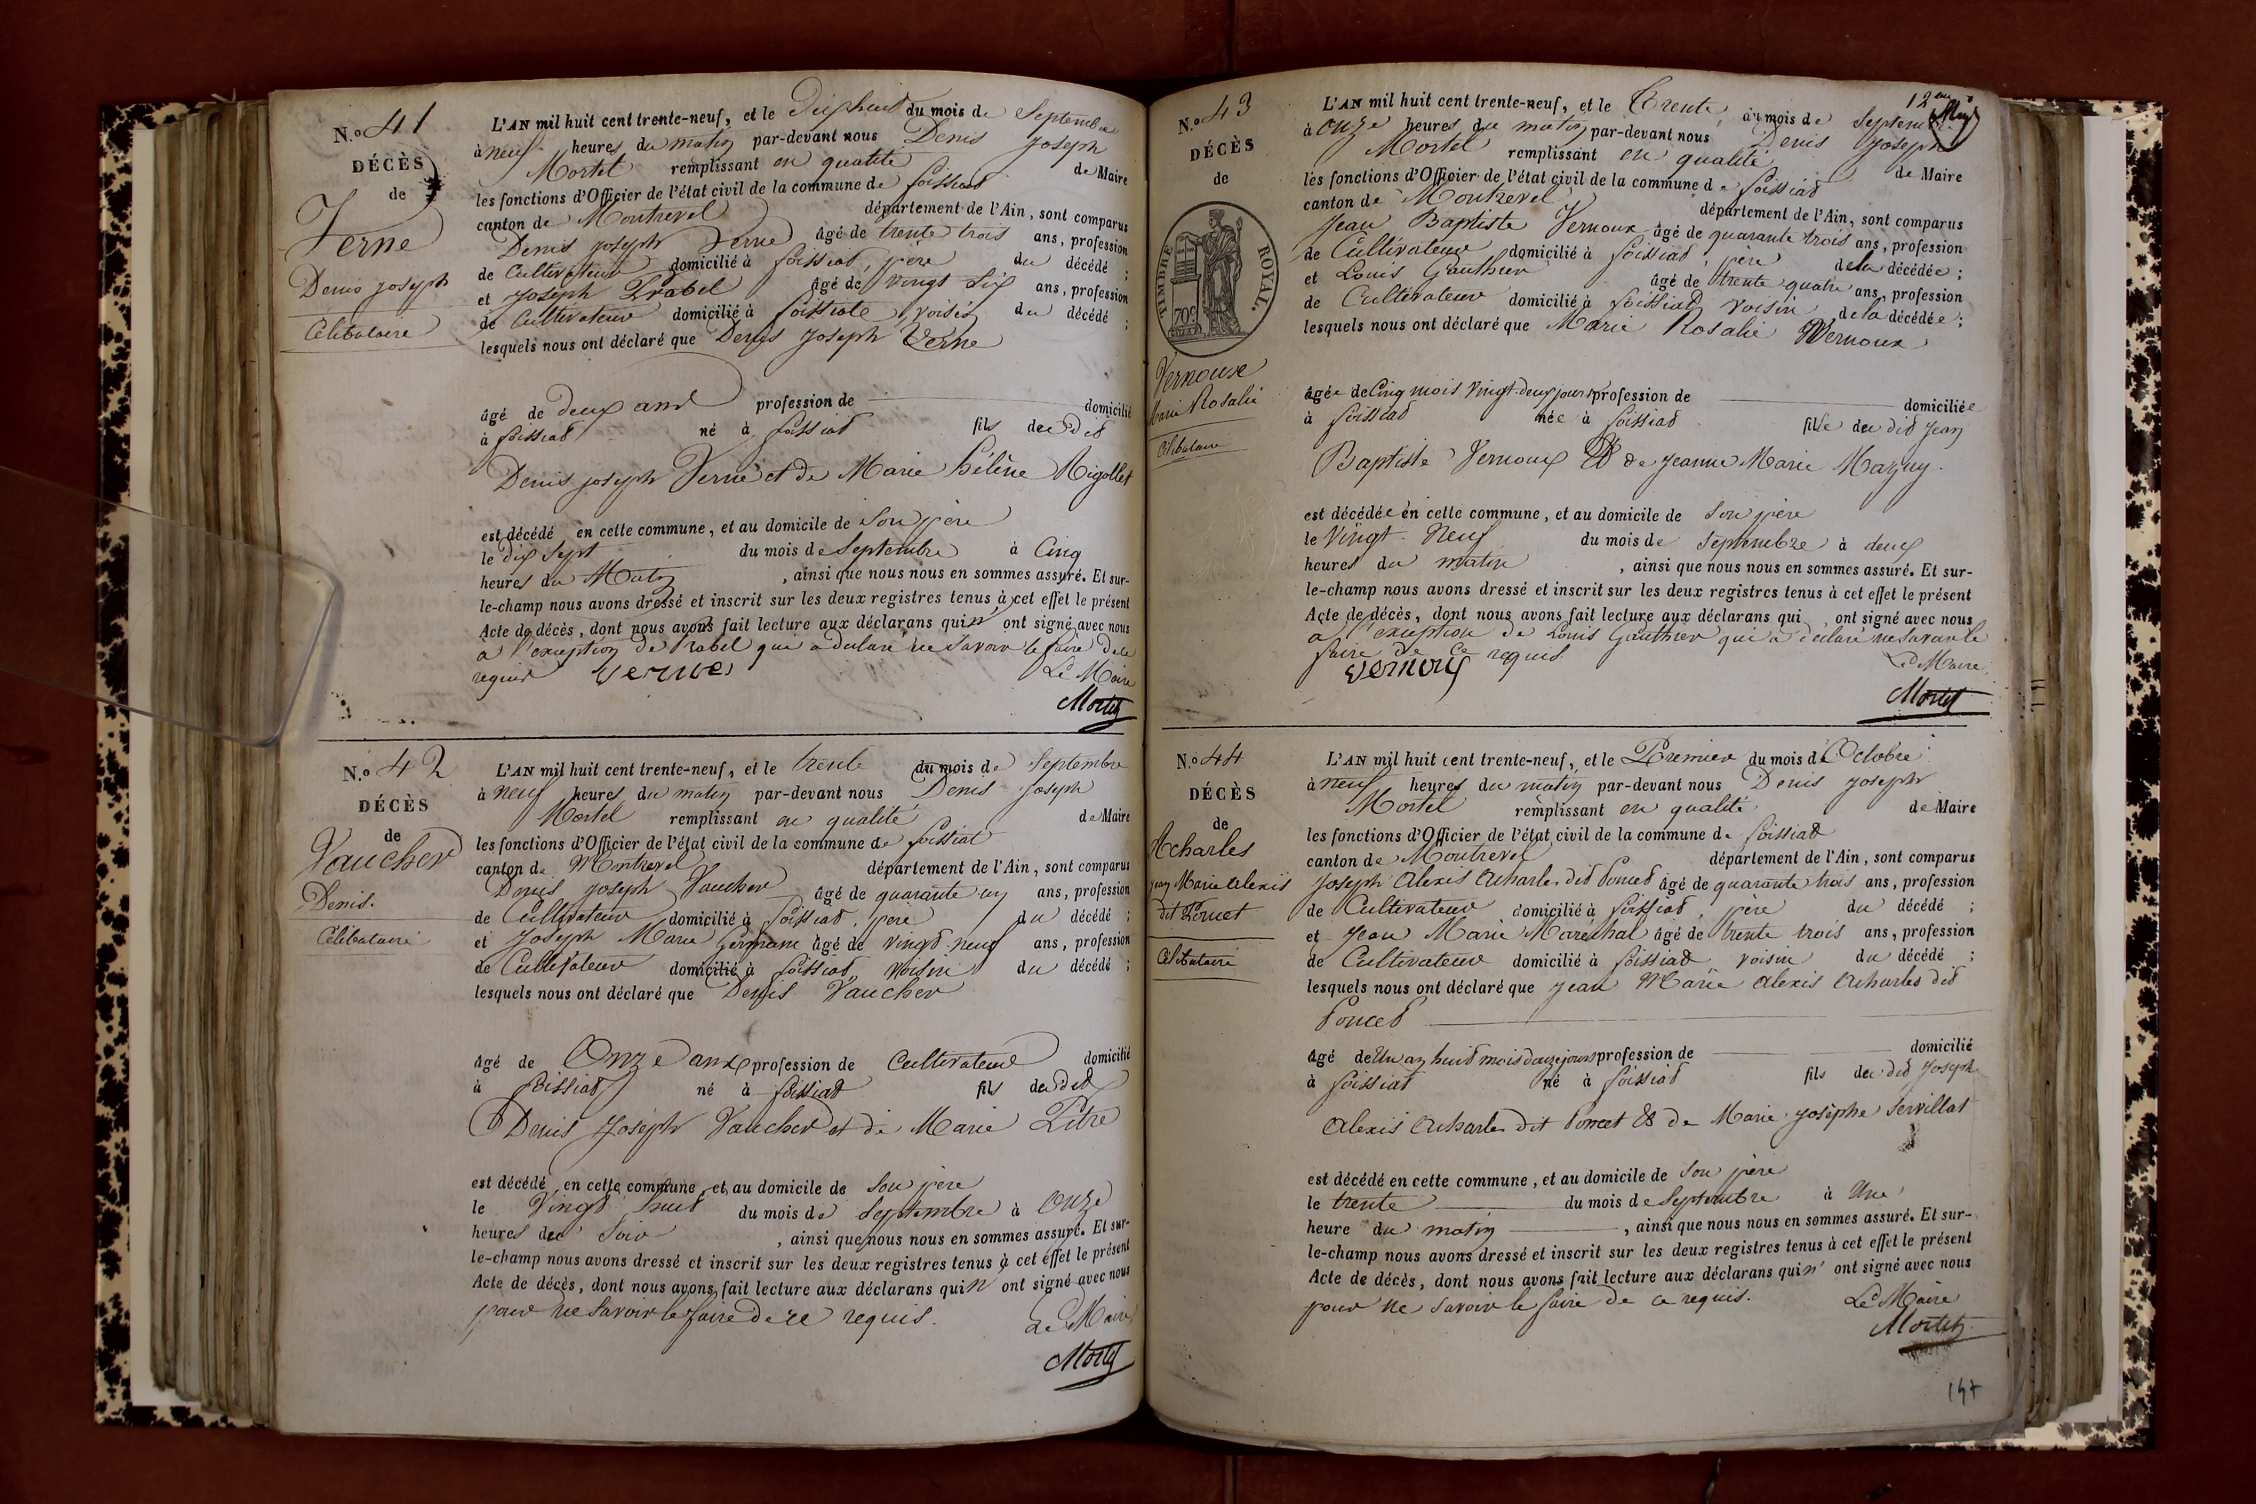 N.º 41
DÉCÈS
de
Verne
Denis Joseph
Célibataire
L'AN mil huit cent trente-neuf, et le Dix huit du mois de Septembre
à neuf heures du matin par-devant nous Denis Joseph
Mortel remplissant en qualité de Maire
les fonctions d'Officier de l'état civil de la commune de foissiat
canton de Montrevel département de l'Ain, sont comparus
Denis joseph Verne âgé de trente trois ans, profession
de Cultivateur domicilié à foissiat, père du décédé ;
et Joseph Prabel âgé de vingt six ans, profession
de Cultivateur domicilié à foissiat voisin du décédé ;
lesquels nous ont déclaré que Denis Joseph Verne
âgé de deux ans profession de domicilié
à foissiat né à foissiat fils du dit
Denis joseph Verne et de Marie hélène Rigollet
est décédé en cette commune, et au domicile de Son père
le dix Sept du mois de Septembre à Cinq
heures du Matin , ainsi que nous nous en sommes assuré. Et sur-
le-champ nous avons dressé et inscrit sur les deux registres tenus à cet effet le présent
Acte de décès, dont nous avons fait lecture aux déclarans qui ont signé avec nous
a l'exception de Prabel qui a déclaré ne Savoir le faire de ce
requis verne Le Maire
Mortel
N.º 42
DÉCÈS
de
Vaucher
Denis.
Célibataire
L'AN mil huit cent trente-neuf, et le trente du mois de Septembre
à neuf heures du matin par-devant nous Denis Joseph
Mortel remplissant en qualité de Maire
les fonctions d'Officier de l'état civil de la commune de foissiat
canton de Montrevel département de l'Ain, sont comparus
Denis joseph Vaucher âgé de quarante un ans, profession
de Cultivateur domicilié à foissiat, père du décédé ;
et Joseph Marie Germain âgé de vingt neuf ans, profession
de Cultivateur domicilié à foissiat, voisin du décédé ;
lesquels nous ont déclaré que Denis Vaucher
âgé de Onze ans profession de Cultivateur domicilié
à foissiat né à foissiat fils du dit
Denis Joseph Vaucher et de Marie Pitre
est décédé en cette commune, et au domicile de Son père
le Vingt huit du mois de Septembre à Onze
heures du Soir , ainsi que nous nous en sommes assuré. Et sur-
le-champ nous avons dressé et inscrit sur les deux registres tenus à cet effet le présent
Acte de décès, dont nous avons fait lecture aux déclarans qui n' ont signé avec nous
pour ne Savoir le faire de ce requis. Le Maire
Mortel
12me
N.º 43
DÉCÈS
de
TIMBRE ROYAL.
70c
Vernoux
Marie Rosalie
Célibataire
L'AN mil huit cent trente-neuf, et le Trente du mois de Septembre
à onze heures du matin par-devant nous Denis Joseph
Mortel remplissant en qualité de Maire
les fonctions d'Officier de l'état civil de la commune de foissiat
canton de Montrevel département de l'Ain, sont comparus
Jean Baptiste Vernoux âgé de quarante trois ans, profession
de Cultivateur domicilié à foissiat, père de la décédée ;
et Louis Gauthier âgé de trente quatre ans, profession
de Cultivateur domicilié à foissiat voisin de la décédée ;
lesquels nous ont déclaré que Marie Rosalie Vernoux
âgée de Cinq mois vingt-deux jours profession de domiciliée
à foissiat née à foissiat fille du dit Jean
Baptiste Vernoux & de Jeanne Marie Mazuy.
est décédée en cette commune, et au domicile de Son père
le Vingt-Neuf du mois de septembre à deux
heures du matin , ainsi que nous nous en sommes assuré. Et sur-
le-champ nous avons dressé et inscrit sur les deux registres tenus à cet effet le présent
Acte de décès, dont nous avons fait lecture aux déclarans qui ont signé avec nous
a l'exception de Louis Gauthier qui a déclaré ne savoir le
faire de ce requis. Le Maire
vernoux
Mortel
N.º 44
DÉCÈS
de
Acharles
jean Marie alexis
dit Poncet
Célibataire
L'AN mil huit cent trente-neuf, et le Premier du mois d'Octobre
à neuf heures du matin par-devant nous Denis Joseph
Mortel remplissant en qualité de Maire
les fonctions d'Officier de l'état civil de la commune de foissiat
canton de Montrevel département de l'Ain, sont comparus
Joseph Alexis Acharles dit Poncet âgé de quarante trois ans, profession
de Cultivateur domicilié à foissiat, père du décédé ;
et Jean Marie Maréchal âgé de trente trois ans, profession
de Cultivateur domicilié à foissiat voisin du décédé ;
lesquels nous ont déclaré que Jean Marie Alexis Acharles dit
Poncet
âgé de Un an huit mois douze jours profession de domicilié
à foissiat né à foissiat fils du dit Joseph
Alexis Acharles dit Poncet & de Marie Josèphe Servillat
est décédé en cette commune, et au domicile de Son père
le trente du mois de Septembre à Une
heure du matin , ainsi que nous nous en sommes assuré. Et sur-
le-champ nous avons dressé et inscrit sur les deux registres tenus à cet effet le présent
Acte de décès, dont nous avons fait lecture aux déclarans qui n' ont signé avec nous
pour ne savoir le faire de ce requis. Le Maire
Mortel
147